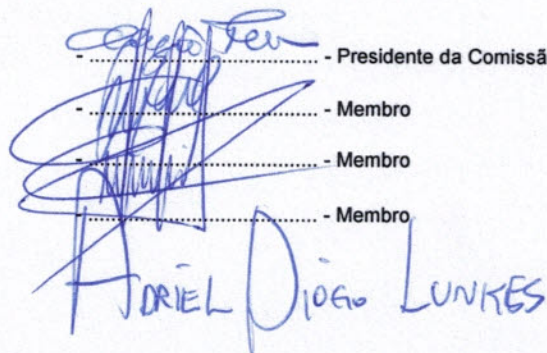 - ........................... - Presidente da Comissã
- ........................... - Membro
- ........................... - Membro
- ........................... - Membro
ADRIEL DIOGO LUNKES